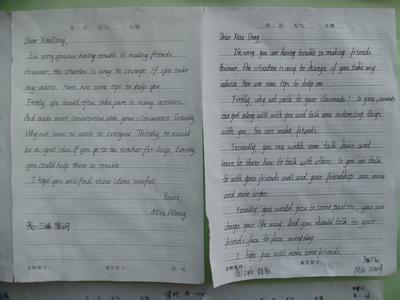 月 日 天气 星期
Dear XiaoDong,
I'm sorry you are having trouble in making friends.
However, the situation is easy to change if you take
my advice. Here are some tips to help you.
Firstly, you should often take part in many activities.
And make more conversation with your classmates. Secondly
Why not learn to smile to everyone Thirdly it would
be a good idea if you go to the teacher for help. Lastly
you could help them in trouble.
I hope you will find these ideas useful.
Yours,
Miss Wang
高一三班
月 日 天气 星期
Dear Xiao Dong,
I'm sorry you are having trouble in making friends
However, the situation is easy to change if you take my
advice. Here are some tips to help
Firstly why not smile to your classmates? Is your
can get along well with you and talk some interesting things
with you. You can make friends.
Secondly, you can watch some talk shows and
learn to them how to talk with others. So you can talk
to with your friends well and your friendship can more
and more longer.
Firstly you would join in some parties, your can
change your life way. but you should talk to your
friends face to face everyday.
I hope you will make some friends
Miss Wang